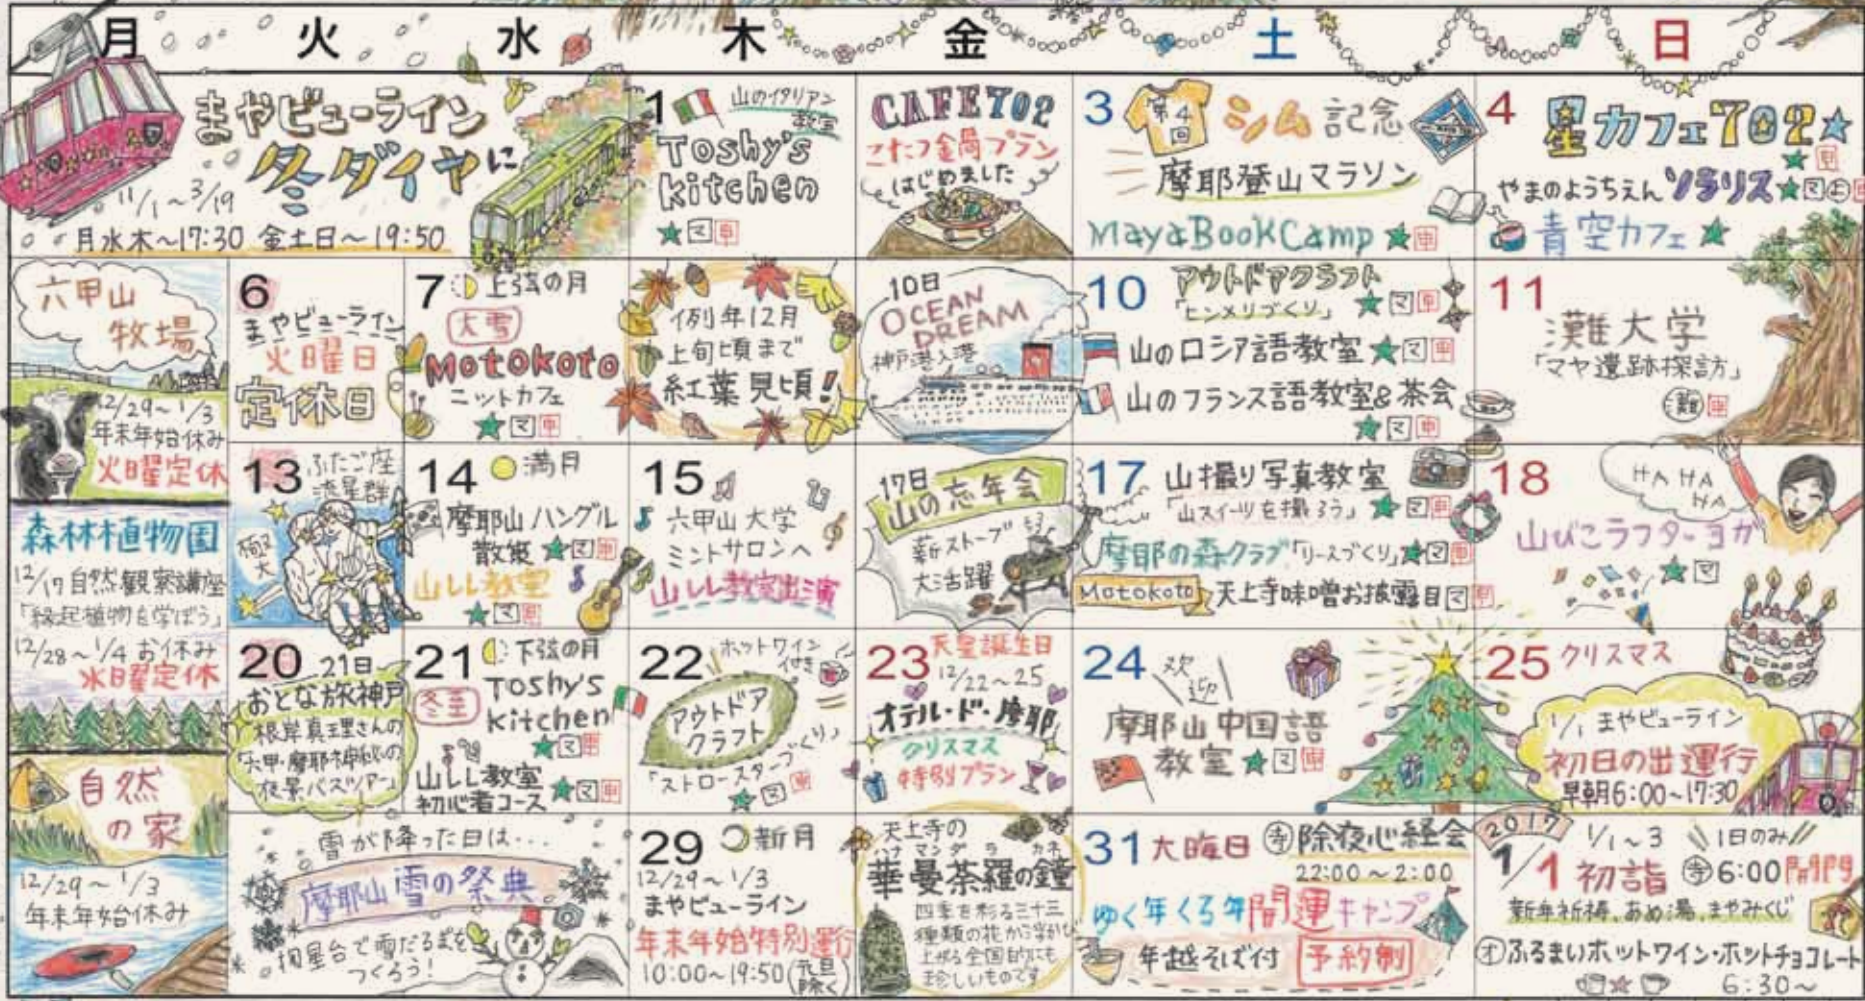 月 火 水 木 金 土 日
まやビューライン
冬ダイヤに
11/1～3/19
月水木～17:30 金土日～19:50
1 山のイタリアン
教室
Toshy's
kitchen
★マ申
CAFE702
こたつ金曜プラン
はじめました
3 第4回 シム記念
摩耶登山マラソン
MayaBookCamp ★申
4 星カフェ702★
★申
やまのようちえんソラリス★マ
青空カフェ★
六甲山
牧場
12/29～1/3
年末年始休み
火曜定休
6
まやビューライン
火曜日
定休日
7 上弦の月
大雪
Motokoto
ニットカフェ
★マ申
例年12月
上旬頃まで
紅葉見頃!
10日
OCEAN
DREAM
神戸港入港
10 アウトドアクラフト
「ヒンメリづくり」★マ申
山のロシア語教室★マ申
山のフランス語教室&茶会
★マ申
11
灘大学
「マヤ遺跡探訪」
灘申
森林植物園
12/17自然観察講座
「縁起植物を学ぼう」
12/28～1/4お休み
水曜定休
13 ふたご座
流星群
極大
14 満月
摩耶山ハングル
散姫★マ申
山LL教室
★マ申
15
六甲山大学
ミントサロンへ
山LL教室出演
17日
山の忘年会
薪ストーブも
大活躍
17 山撮り写真教室
「山スイーツを撮ろう」★マ申
摩耶の森クラブ「リースづくり」★マ申
Motokoto 天上寺味噌お披露目マ申
18
HA HA
HA
山びこラフターヨガ
★マ
20 21日
おとな旅神戸
根岸真理さんの
「六甲・摩耶神秘の
夜景バスツアー」
21 下弦の月
冬至 Toshy's
kitchen
★マ申
山LL教室
初心者コース★マ申
22 ホットワイン
付き
アウトドア
クラフト
「ストロースターづくり」
★マ申
23 天皇誕生日
12/22～25
オテル・ド・摩耶
クリスマス
特別プラン
24 欢迎
摩耶山中国語
教室★マ申
25 クリスマス
1/1 まやビューライン
初日の出運行
早朝6:00～17:30
自然
の家
12/29～1/3
年末年始休み
雪が降った日は...
摩耶山雪の祭典
掬星台で雪だるまを
つくろう!
29 新月
12/29～1/3
まやビューライン
年末年始特別運行
10:00～19:50(元旦除く)
天上寺の
ハナマンダラ カネ
華曼荼羅の鐘
四季を彩る三十三
種類の花が浮かび
上がる全国的にも
珍しいものです
31 大晦日 寺除夜心経会
22:00～2:00
ゆく年くる年開運キャンプ
年越そば付 予約制
2017 1/1～3 1日のみ
1/1 初詣 寺6:00開門
新年祈祷、あめ湯、まやみくじ
オふるまいホットワイン・ホットチョコレート
6:30～